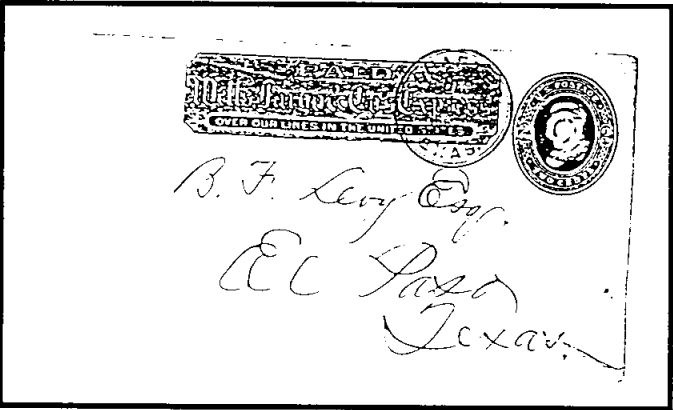 PAID
Wells Fargo & Co's Express
OVER OUR LINES IN THE UNITED STATES
U.S. POSTAGE
TWO CENTS
B. F. Levy Esq.
El Paso
Texas.